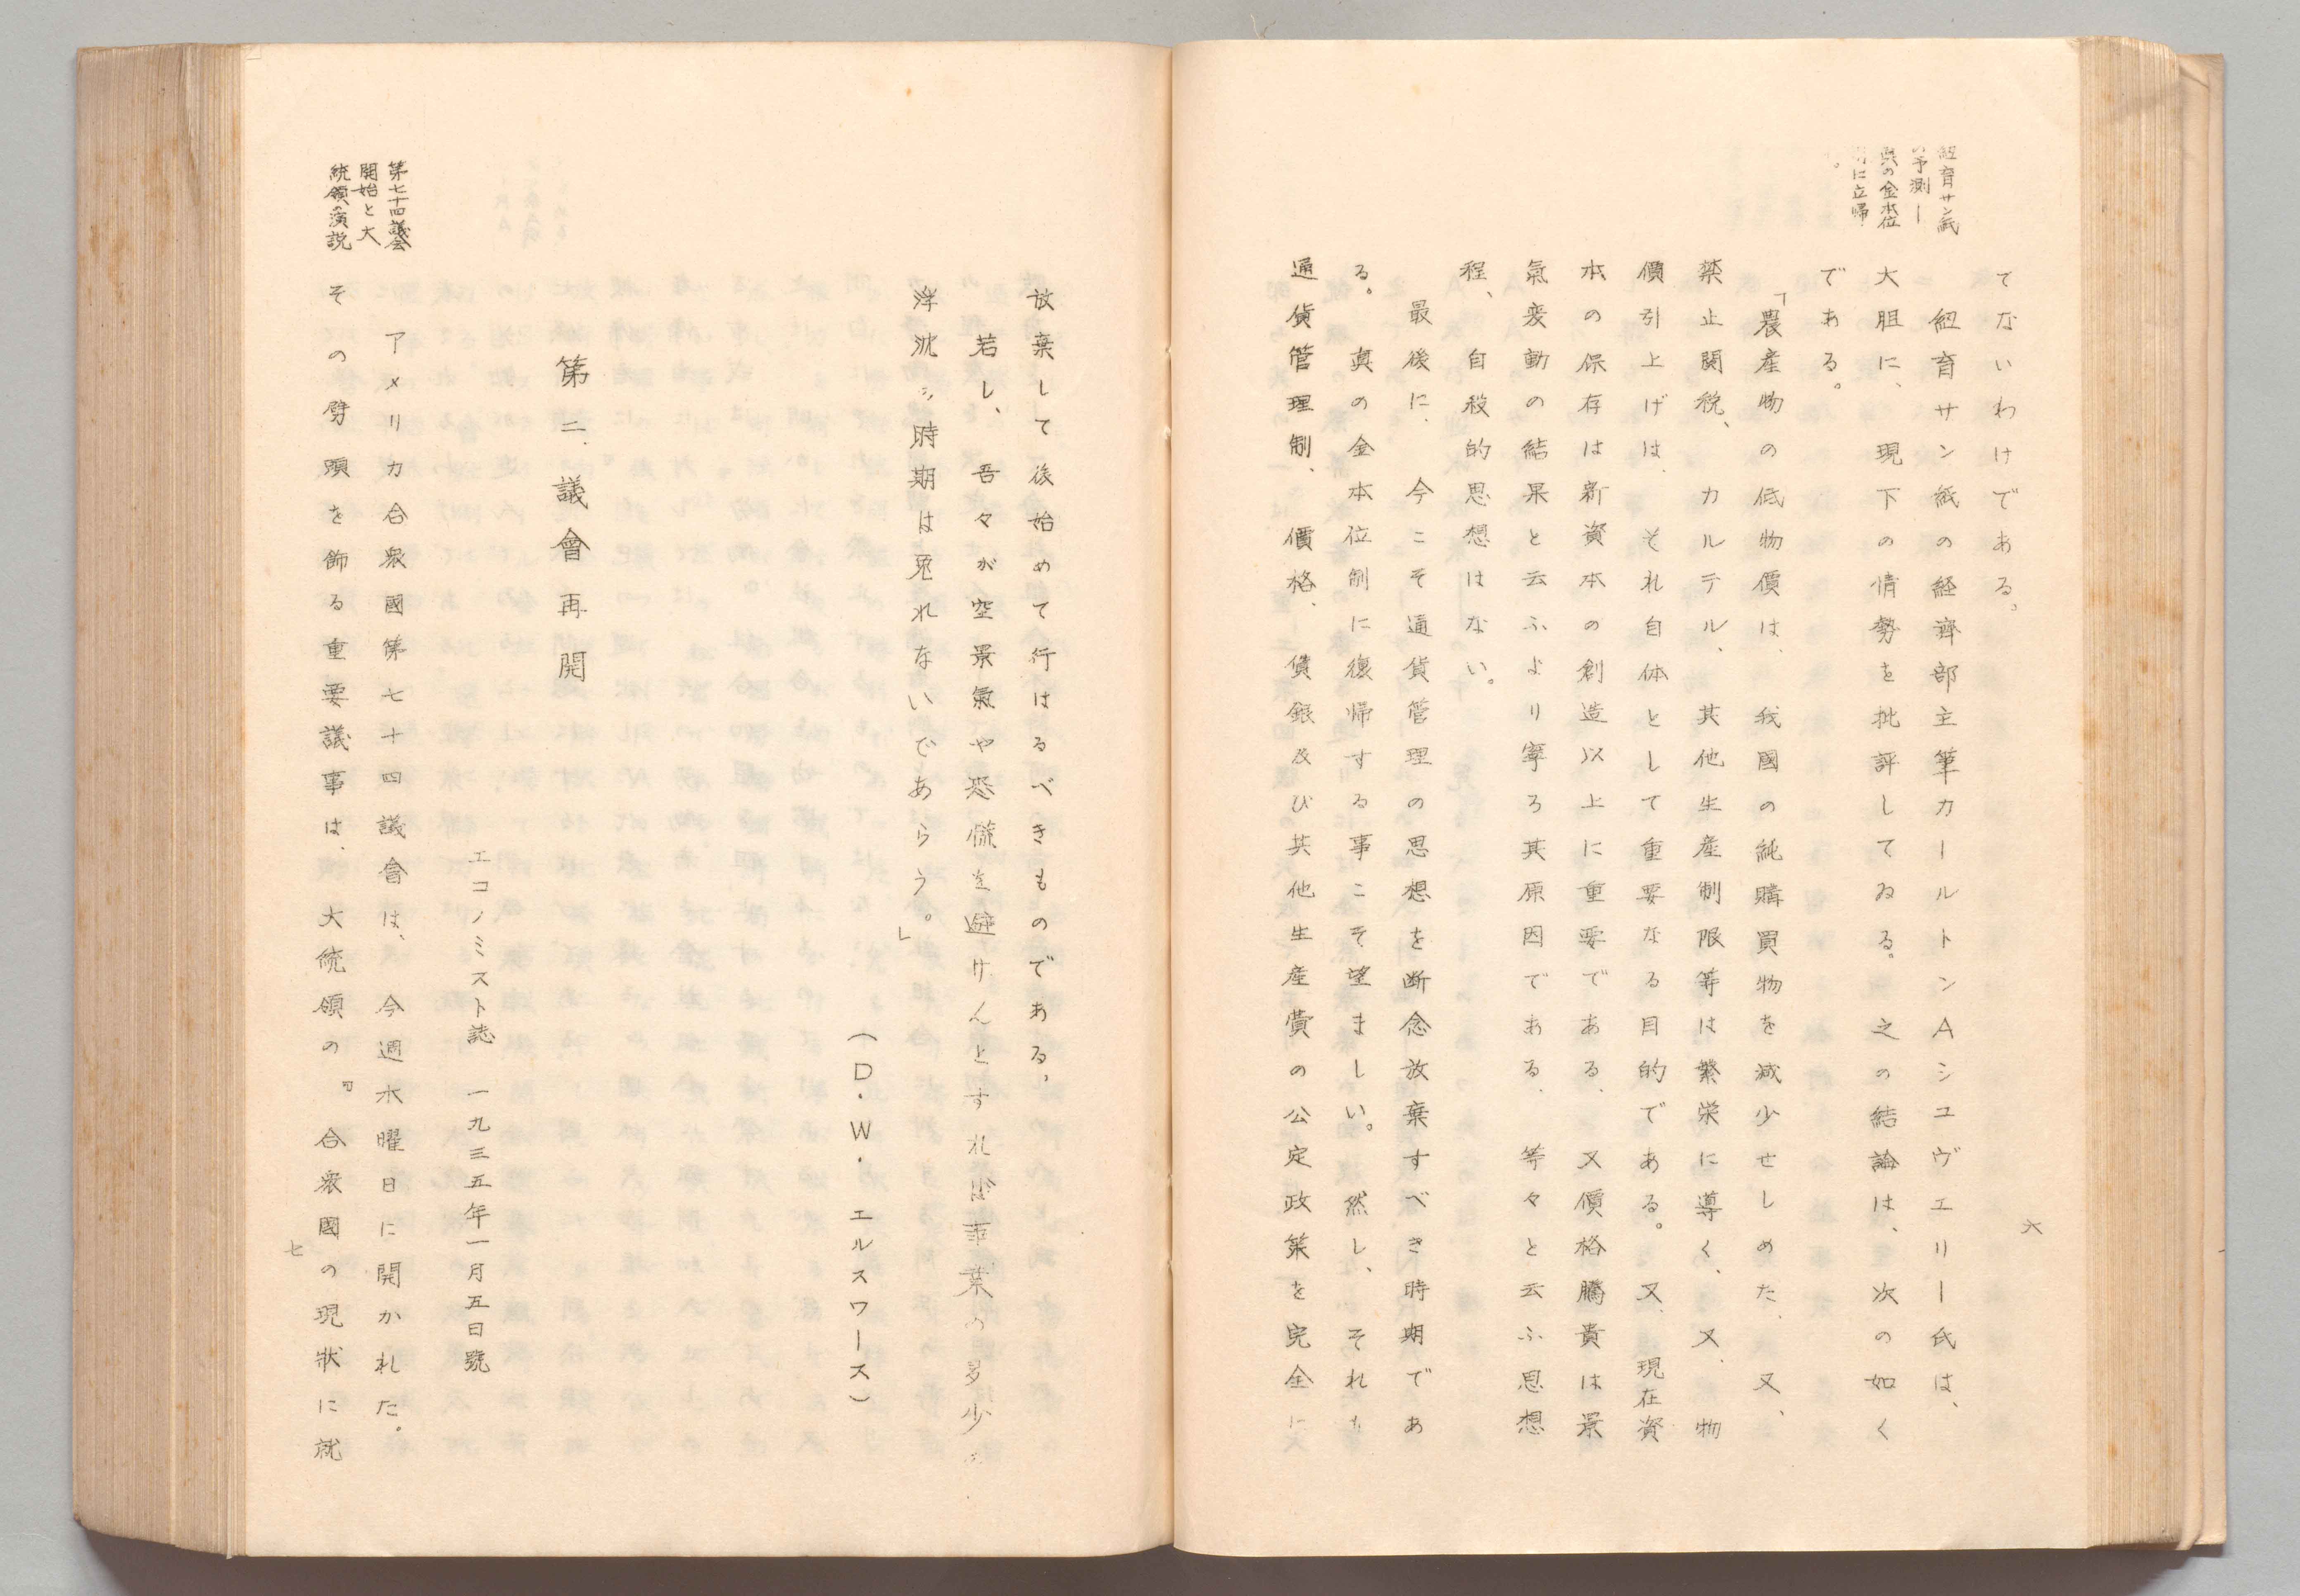 六
紐育サン紙
の予測―
真の金本位
制に立帰
でないわけである。
紐育サン紙の経済部主筆カールトンAシユヴエリー氏は、
大胆に、現下の情勢を批評してゐる。之の結論は、次の如く
である。
「農産物の低物價は、我國の純購買物を減少せしめた、又、
禁止関税、カルテル、其他生産制限等は繁栄に導く、又、物
價引上げは、それ自体として重要なる目的である。又、現在資
本の保存は新資本の創造以上に重要である、又價格騰貴は景
氣変動の結果と云ふより寧ろ其原因である、等々と云ふ思想
程、自殺的思想はない。
最後に、今こそ通貨管理の思想を断念放棄すべき時期であ
る。真の金本位制に復帰する事こそ望ましい。然し、それも
通貨管理制、價格、賃銀及び其他生産賞の公定政策を完全に
放棄して後始めて行はるべきものである。
若し、吾々が空景氣や恐慌を避けんとすれば事業の多少の
浮沈シ時期は免れないであらう。」
(D.W.エルスワース)
第二、議會再開
エコノミスト誌 一九三五年一月五日號
第七十四議会
開始と大
統領の演説
アメリカ合衆國第七十四議會は、今週水曜日に開かれた。
その劈頭を飾る重要議事は、大統領の『合衆國の現狀に就
七